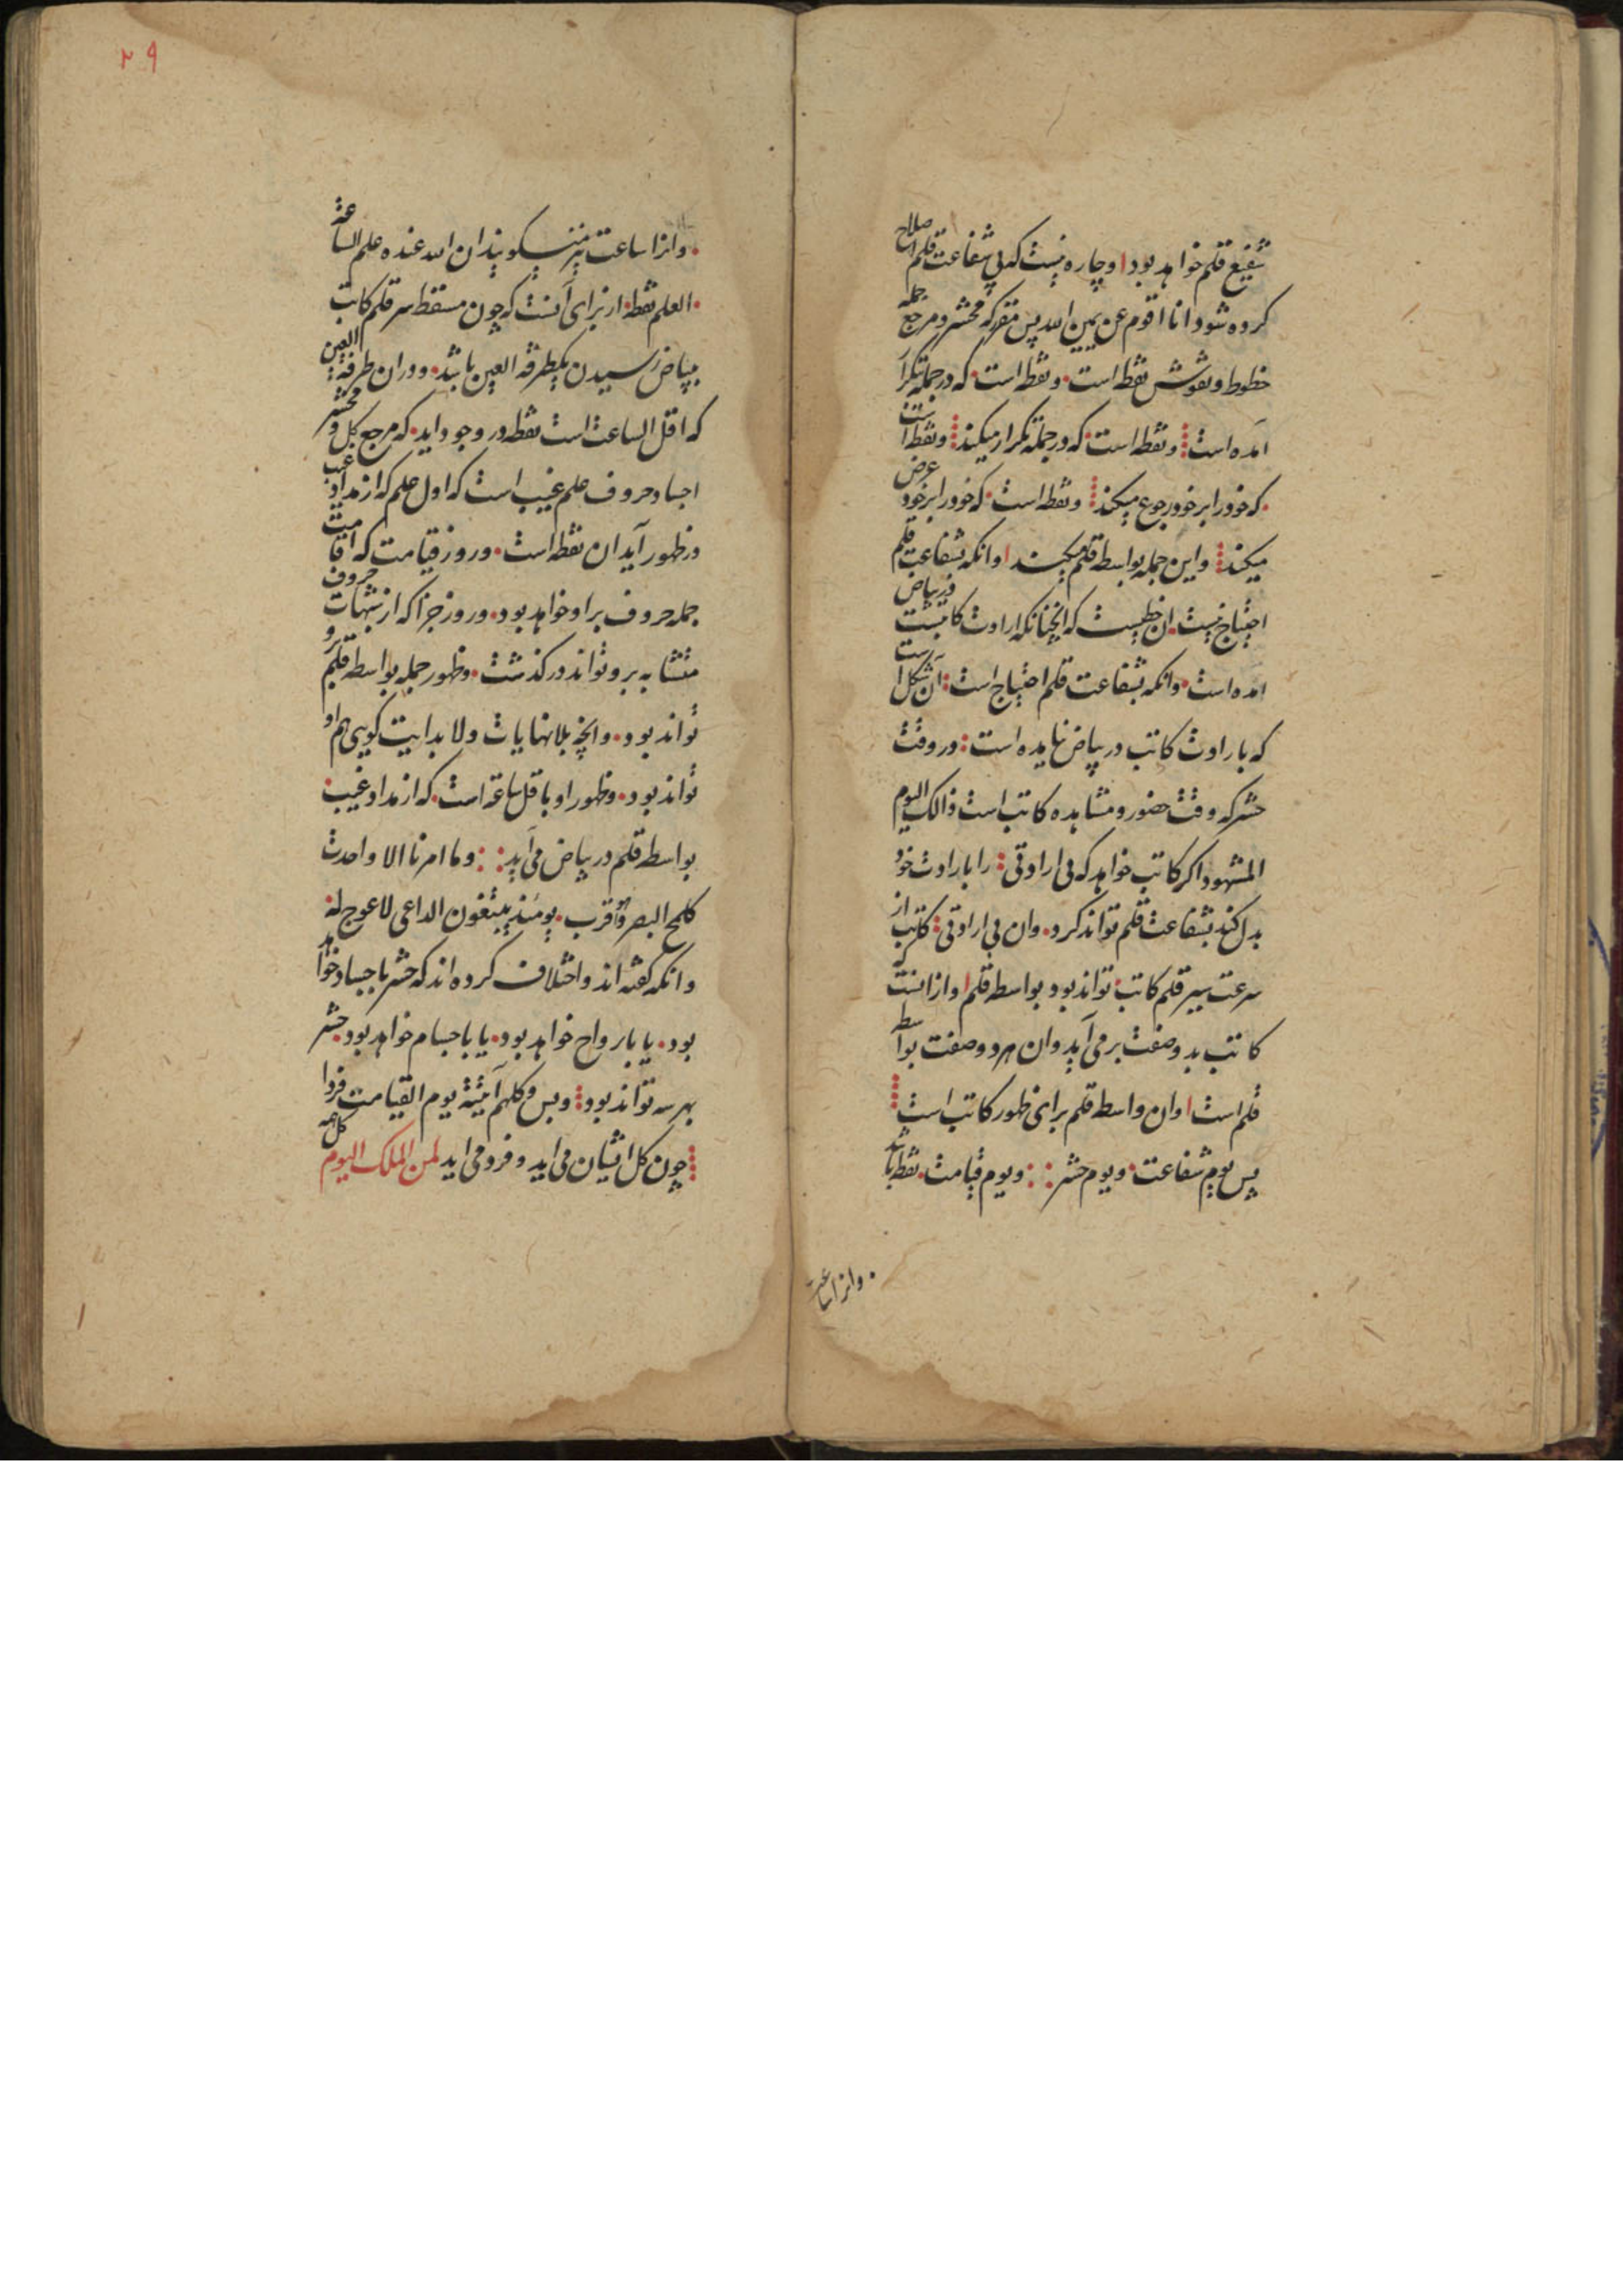 شفیع قلم خواهد بود او چاره نیست که بی شفاعت قلم اصلاح
کرده شود انا اقوم عن یمین الله پس مقر که محشر و مرجع جمله
خطوط و نقوش نقطه است و نقطه است که در جمله تکرار
آمده است و نقطه است که در جمله تکرار میکند و نقطه است
که خود را بر خود رجوع میکند و نقطه است که خود را بر خود عرض
میکند و این جمله بواسطه قلم میکند او انکه بشفاعت قلم
احتیاج نیست ان خطیست که انچنانکه ارادت کاتبست در بیاض
آمده است و انکه بشفاعت قلم احتیاج است آن شکل است
که بارادت کاتب در بیاض نیامده است و در وقت
حشر که وقت حضور و مشاهده کاتب است ذالک الیوم
المشهود اکر کاتب خواهد که بی ارادتی را بارادت خود
بدل کند بشفاعت قلم تواند کرد و ان بی ارادتی کاتب از
سرعت سیر قلم کاتب تواند بود بواسطه قلم او از انست که
کاتب بدو صفت بر می آید و ان هر دو صفت بواسطه
قلم است او ان واسطه قلم برای ظهور کاتب است
پس یوم شفاعت و یوم حشر و یوم قیامت نقطه باشد
و انرا ساعت
۲۹
و انرا ساعت نیز میکویند ان الله عنده علم الساعة
العلم نقطة از برای آنست که چون مسقط سر قلم کاتب
ببیاض رسیدن بیکطرفة العین باشد و در ان طرفة العین
که اقل الساعت است نقطه در وجود اید که مرجع کل و محشر
اجساد حروف علم غیب است که اول علم که از مداد غیب
در ظهور آید ان نقطه است و روز قیامت که اقامت
جمله حروف بر او خواهد بود و روز جزا که از شبهات حروف
متشابه برو تواند درکذشت و ظهور جمله بواسطه قلم برو
تواند بود و انچه بلا نهایات و لا بدایت کویی هم او
تواند بود و ظهور او باقل ساعة است که از مداد غیب
بواسطه قلم در بیاض می آید و ما امرنا الا واحدة
کلمح البصر او هو اقرب یومئذ یتبعون الداعی لا عوج له
و انکه کفته اند و اختلاف کرده اند که حشر باجساد خواهد
بود یا بارواح خواهد بود یا باجسام خواهد بود حشر
بهر سه تواند بود و بس و کلهم آتیه یوم القیامت فردا
چون کل ایشان می اید و فرو می اید لمن الملک الیوم